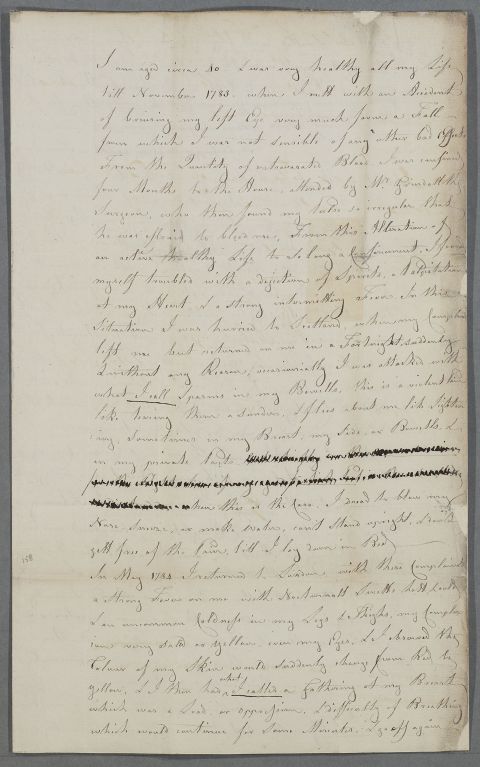 I am aged circa 40. I was very healthy all my Life
till November 1783. when I mett with an Accident
of bruising my left Eye very much from a Fall
from which I was not sensible of any other bad Effects
From the Quantity of extravasated Blood I was confined
four Months to the House, attended by Mr
Surgeon, who then found my Pulse so irregular that
he was afraid to bleed me, From this Alteration of
an active healthy Life to so long a Confinement, I found
myself troubled with a dejection of Spirits, a Palpitation
at my Heart & a strong intermitting Fever. In this
Situation I was hurried to Scotland, when my Complaints
left me but returned on me in a Fortnight, suddenly
& without any Reason, occasionally I was attacked with
what I call Spasms in my Bowells, this is a violent Pain
like tearing them asunder, & flies about me like Lightn
ing, Sometimes in my Breast, my Side, or Bowells, &
in my private parts
when this is the Case, I dread to blow my
Nose, Sneeze, or make Water, can't stand upright, & don't
gett free of the Pain, till I lay down in Bed
In May 1784 I returned to London, with these Complaints
a strong Fever on me with Nocturnall Sweats
& an uncommon Coldness in my Legs & Thighs, my Complex
ion very sallow or yellow, even my Eyes, & I observed the
Colour of my Skin would suddenly change from Red to
yellow, & I then had what I called a fluttering at my Breast
which was a Load, or oppression, & difficulty of Breathing
which would continue for some Minutes, & go off again
158